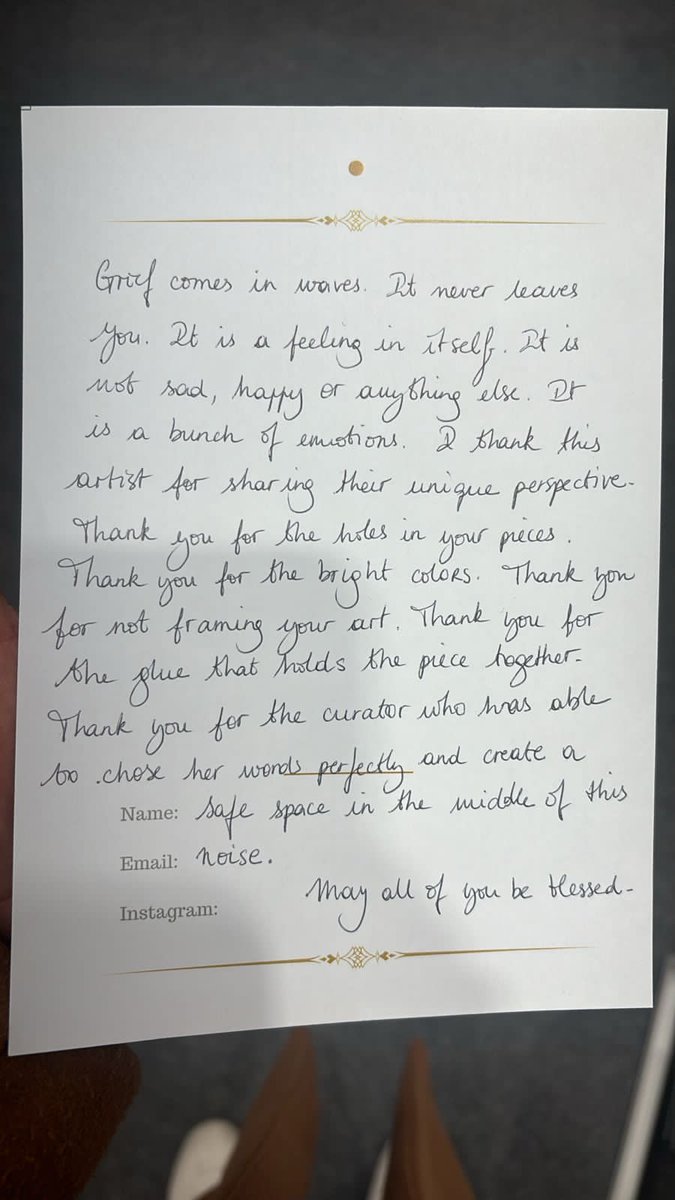 Grief comes in waves. It never leaves
you. It is a feeling in itself. It is
not sad, happy or anything else. It
is a bunch of emotions. I thank this
artist for sharing their unique perspective.
Thank you for the holes in your pieces.
Thank you for the bright colors. Thank you
for not framing your art. Thank you for
the glue that holds the piece together.
Thank you for the curator who was able
to chose her words perfectly and create a
Name: safe space in the middle of this
Email: noise.
May all of you be blessed.
Instagram: